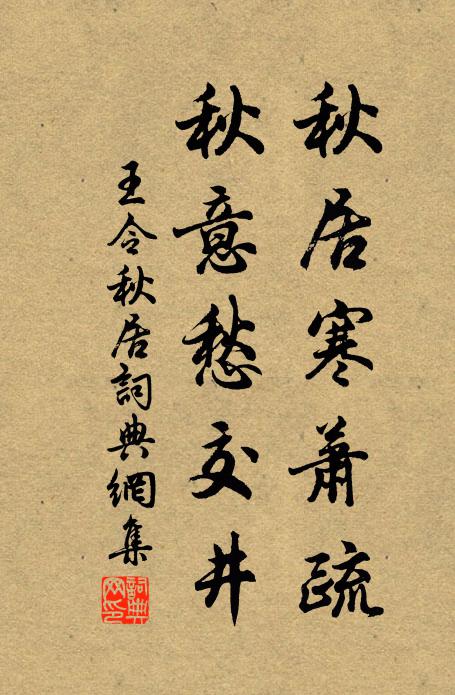 秋居寒蕭疏
秋意愁交井
王令秋居詞典網集
詞典网印